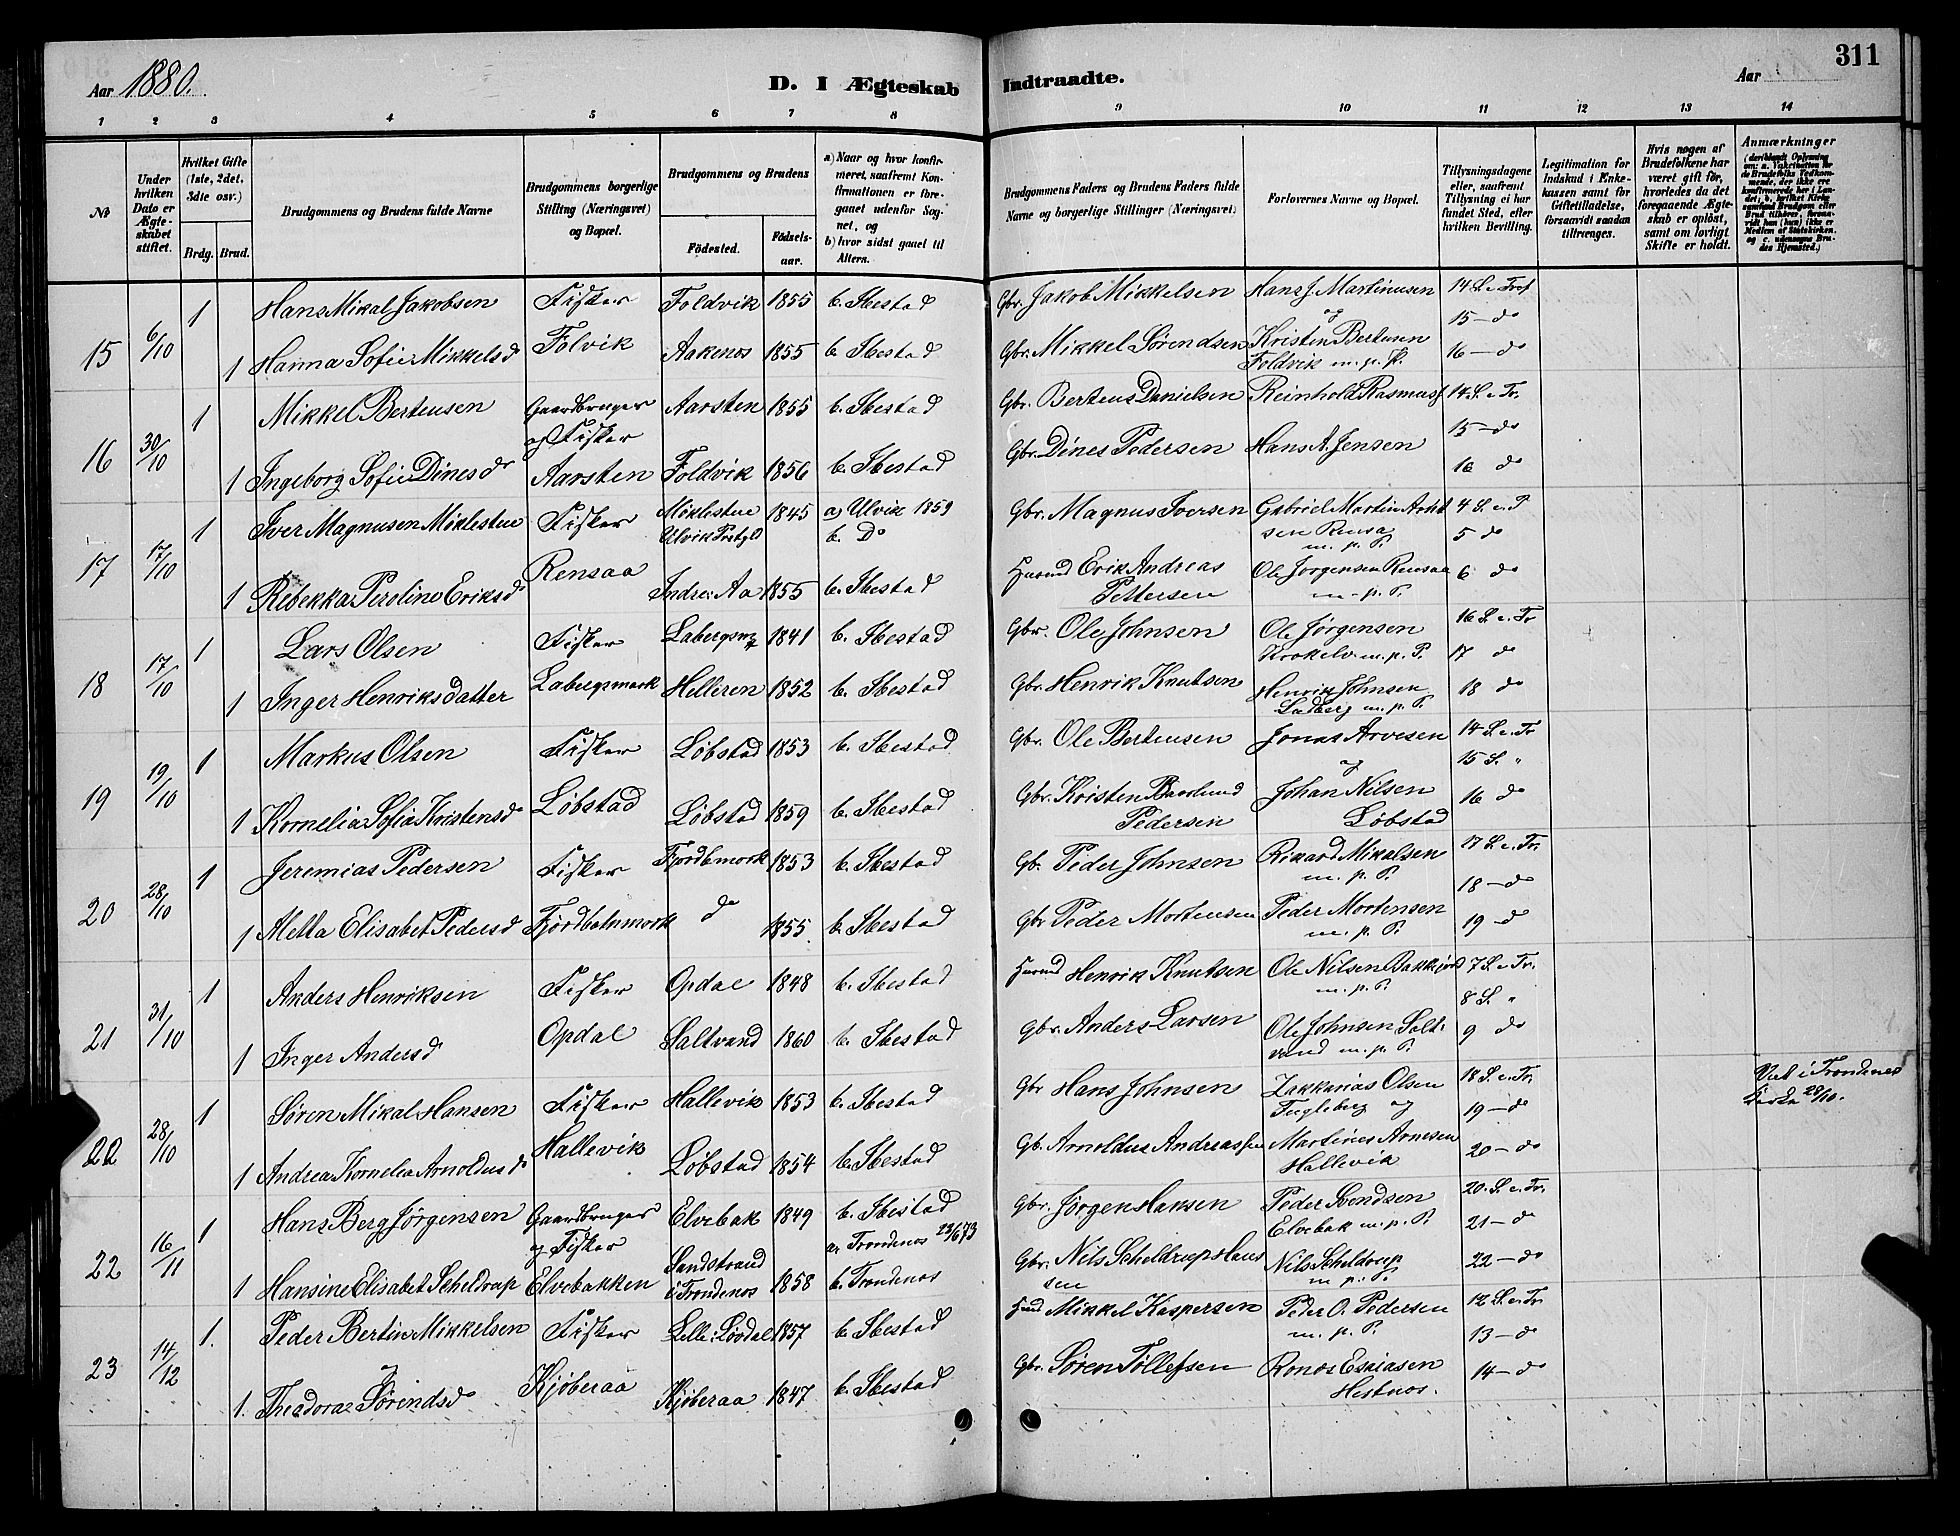 Aar 1880.
D. I Ægteskab Indtraadte.
Aar
311
1 2 3 4 5 6 7 8 9 10 11 12 13 14
№
Under hvilken Dato er Ægteskabet stiftet.
Hvilket Gifte (1ste, 2det, 3die osv.)
Brdg. Brud.
Brudgommens og Brudens fulde Navne
Brudgommens borgerlige Stilling (Næringsvei) og Bopæl.
Brudgommens og Brudens
Fødested.
Fødselsaar.
a) Naar og hvor konfirmeret, saafremt Konfirmationen er foregaaet udenfor Sognet, og
b) hvor sidst gaaet til Altern.
Brudgommens Faders og Brudens Faders fulde Navne og borgerlige Stillinger (Næringsvei)
Forlovernes Navne og Bopæl.
Tillysningsdagene eller, saafremt Tillysning ei har fundet Sted, efter hvilken Bevilling.
Legitimation for Indskud i Enkekassen samt for Giftetilladelse, forsaavidt saadan tiltrænges.
Hvis nogen af Brudefolkene har været gift før, hvorledes da det foregaaende Ægteskab er opløst, samt om lovligt Skifte er holdt.
Anmærkninger
15 6/10 1 Hans Mikal Jakobsen Fisker Foldvik 1855 b. Ibestad Gbr. Jakob Mikkelsen Hans J. Martinusen 14 S. e. Tref
og 15 — do
1 Hanna Sofie Mikkelsd Folvik Aakenes 1855 b. Ibestad Gbr. Mikkel Sørendsen Kristen Bertusen 16 — do
Foldvik m. p. P.
16 30/10 1 Mikkel Berteusen Gaardbruger Aarsten 1855 b. Ibestad Gbr. Berteus Danielsen Reinhold Rasmusf 14 S. e. Tr.
og Fisker 15 — do
1 Ingeborg Sofie Dinesdr Aarsten Foldvik 1856 b. Ibestad Gbr. Dines Pedersen Hans A. Jensen 16 do
17 17/10 1 Iver Magnusen Miklestue Fisker Miklestue 1845 a) Ulvik 1859 Gbr. Magnus Iversen Gabriel Martin Arnt 4 S. e. P
Ulvik Prstgld b. Do sen Rensa m. p. P. 5 do
1 Rebekka Peroline Eriksd Rensaa Indre Aa 1855 b. Ibestad Husmd Erik Andreas Ole Jørgensen Rensaa 6 do
Pettersen m. p. P.
18 17/10 1 Lars Olsen Fisker Labergsm 1841 b. Ibestad Gbr. Ole Johnsen Ole Jørgensen 16 S. e. Tr
Krokelv m. p. P. 17 do
1 Inger Henriksdatter Labergsmark Helleren 1852 b. Ibestad Gbr. Henrik Knutsen Henrik Johnsen 18 do
Ladberg m. p. P.
19 19/10 1 Markus Olsen Fisker Løbstad 1853 b. Ibestad Gbr. Ole Berteusen Jonas Arvesen 14 S. e. Tr
og 15 S. "
1 Kornelia Sofia Kristensd Løbstad Løbstad 1859 b. Ibestad Gbr. Kristen Baarlund Johan Nilsen 16 do
Pedersen Løbstad
20 28/10 1 Jeremias Pedersen Fisker Fjordbmork 1853 b. Ibestad Gb. Peder Johnsen Rikard Mikalsen 17 S. e. Tr.
m. p. P. 18 — do
1 Metta Elisabet Pedersd Fjordbotnmork do 1855 b. Ibestad Gbr Peder Mortensen Peder Mortensen 19 — do
m. p. P.
21 31/10 1 Anders Henriksen Fisker Opdal 1848 b. Ibestad Husmd Henrik Knutsen Ole Nilsen Bakkejord 7 S. e. Tr.
m. p. P. 8 S. "
1 Inger Andersd Opdal Saltvand 1860 b. Ibestad Gbr. Anders Larsen Ole Johnsen Salt- 9 do
vand m. p. P.
22 28/10 1 Søren Mikal Hansen Fisker Hallevik 1853 b. Ibestad Gbr Hans Johnsen Zakkarias Olsen 18 S. e. Tr. Viet i Trondenes
Fugleberg og 19 — do Kirke 28/10.
1 Andrea Kornelia Arnoldusd Hallevik Løbstad 1854 b. Ibestad Gb. Arnoldus Andreassen Martines Arnesen 20 — do
Hallevik
22 16/11 1 Hans Berg Jørgensen Gaardbruger Elvebak 1849 b. Ibestad Gbr. Jørgen Hansen Peder Svendsen 20. S. e. Tr.
og Fisker Sandstrand a. Trondenes 23/6 73 Elvebak m. p. P. 21 — do
1 Hansine Elisabet Scheldrup Elvebakken i Trondenes 1858 b. Trondenes Gbr. Nils Scheldrup Hans Nils Scheldrup 22 — do
sen m. p. P.
23 14/12 1. Peder Bertin Mikkelsen Fisker Lille Løvdal 1857 b. Ibestad Hmd Mikkel Kaspersen Peder O. Pedersen 12 S. e. Tr
og m. p. P. 13 — do
1. Theodora Sørendsd Kjøberaa Kjøberaa 1847 b. Ibestad Gbr. Søren Tøllefsen Ronas Esaiasen 14 — do
Hestnes.